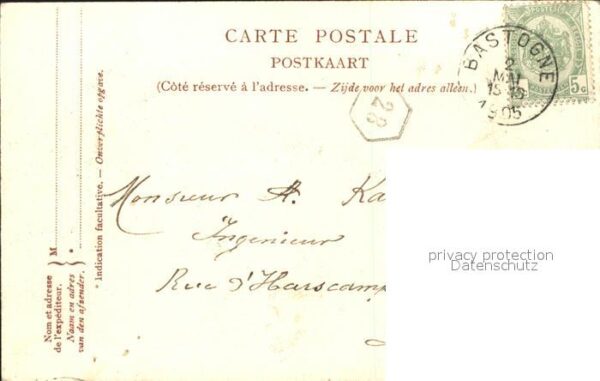 CARTE POSTALE
POSTKAART
(Côté réservé à l'adresse. — Zijde voor het adres alleen.)
BASTOGNE
2
MAI
15-16
1905
5c
28
Monsieur A. Ka
Ingenieur
Rue d'Harscamp
privacy protection
Datenschutz
* Indication facultative. — Onverplichte opgave.
M
*
Nom et adresse
de l'expéditeur.
Naam en adres
van den afzender.